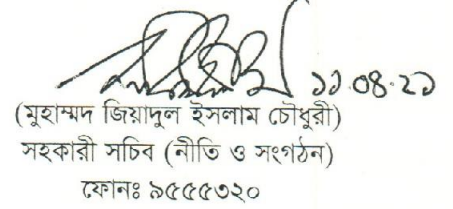 ১১.০৪.২১
(মুহাম্মদ জিয়াদুল ইসলাম চৌধুরী)
সহকারী সচিব (নীতি ও সংগঠন)
ফোনঃ ৯৫৫৫৩২০